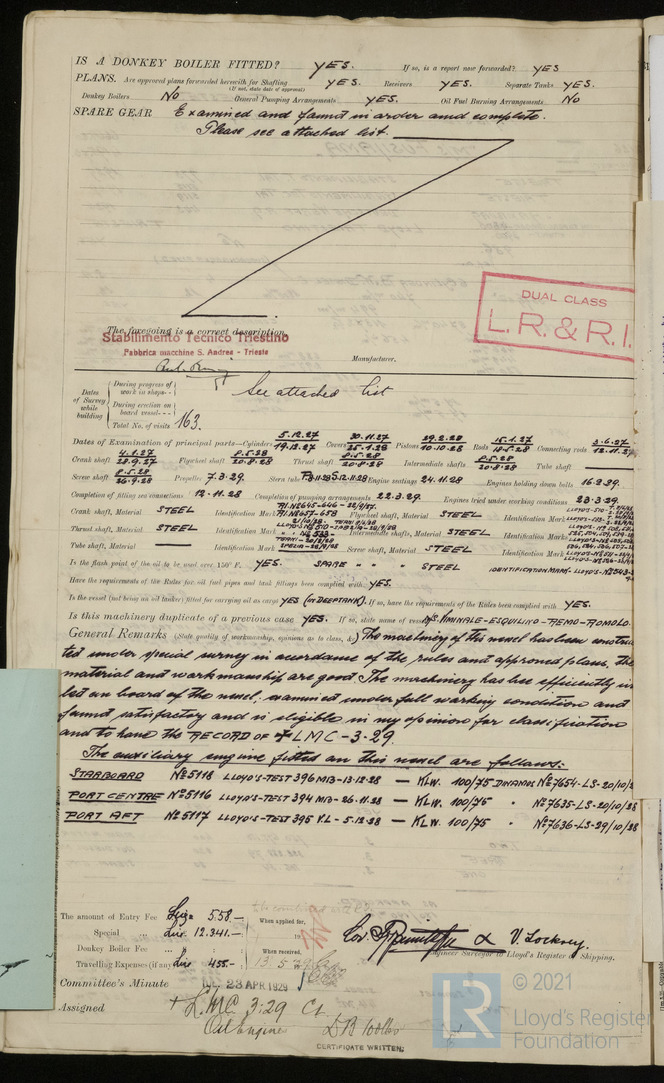 IS A DONKEY BOILER FITTED? YES. If so, is a report now forwarded? YES
PLANS. Are approved plans forwarded herewith for Shafting YES. Receivers YES. Separate Tanks YES.
(If not, state date of approval)
Donkey Boilers No General Pumping Arrangements YES. Oil Fuel Burning Arrangements No
SPARE GEAR Examined and found in order and complete.
Please see attached list.
DUAL CLASS
L.R. & R.I.
The foregoing is a correct description,
Stabilimento Tecnico Triestino
Fabbrica macchine S. Andrea - Trieste
Manufacturer.
Dates of Survey while building
During progress of work in shops--
During erection on board vessel---
Total No. of visits 163.
See attached list
Dates of Examination of principal parts—Cylinders 5.12.27 19.12.27 Covers 30.11.27 25.1.28 Pistons 29.2.28 10.10.28 Rods 15.1.27 18.5.28 Connecting rods 3.6.27 12.11.27
Crank shaft 4.1.27 28.9.27 Flywheel shaft 8.5.28 20.8.28 Thrust shaft 8.5.28 20.8.28 Intermediate shafts 8.5.28 20.8.28 Tube shaft
Screw shaft 8.5.28 26.9.28 Propeller 7.3.29. Stern tube Engine seatings 24.11.28 Engines holding down bolts 16.2.29.
Completion of fitting sea connections 12.11.28 Completion of pumping arrangements 22.3.29. Engines tried under working conditions 23.3.29.
Crank shaft, Material STEEL Identification Mark Flywheel shaft, Material STEEL Identification Mark
Thrust shaft, Material STEEL Identification Mark Intermediate shafts, Material STEEL Identification Mark
Tube shaft, Material Identification Mark Screw shaft, Material STEEL
Is the flash point of the oil to be used over 150° F. YES. SPARE " " STEEL IDENTIFICATION MARK-LLOYD'S-
Have the requirements of the Rules for oil fuel pipes and tank fittings been complied with YES.
Is the vessel (not being an oil tanker) fitted for carrying oil as cargo YES (IN DEEPTANK). If so, have the requirements of the Rules been complied with YES.
Is this machinery duplicate of a previous case YES. If so, state name of vessel M/S. VIMINALE-ESQUILINO-REMO-ROMOLO.
General Remarks (State quality of workmanship, opinions as to class, &c.) The machinery of this vessel has been construc
ted under special survey in accordance of the rules and approved plans, the
material and workmanship are good. The machinery has bee efficiently in
led on board of the vessel, examined under full working condition and
found satisfactory and is eligible in my opinion for classification
and to have the RECORD OF + LMC-3-29.
The auxiliary engine fitted on this vessel are follows:
STARBOARD No 5118 LLOYD'S-TEST 396 MB-13-12-28 — KLW. 100/75 DINAMOS No 7654-LS-20/10/2
PORT CENTRE No 5116 LLOYD'S-TEST 394 MB-26-11-28 — KLW. 100/75 " No 7635-LS-20/10/28
PORT AFT No 5117 LLOYD'S-TEST 395 V.L-5-12-28 — KLW. 100/75 " No 7636-LS-29/10/28
The amount of Entry Fee Lire 558.-
Special " Lire 12.341.-
Donkey Boiler Fee "
Travelling Expenses (if any) Lire 455.-
When applied for,
19
When received,
13.5.29
V. Lockney.
Engineer Surveyor to Lloyd's Register of Shipping.
Committee's Minute 23 APR 1929
Assigned + LMC 3.29 Ct
Oil Engines DB 100lbs
CERTIFICATE WRITTEN.
© 2021
LR
Lloyd's Register
Foundation